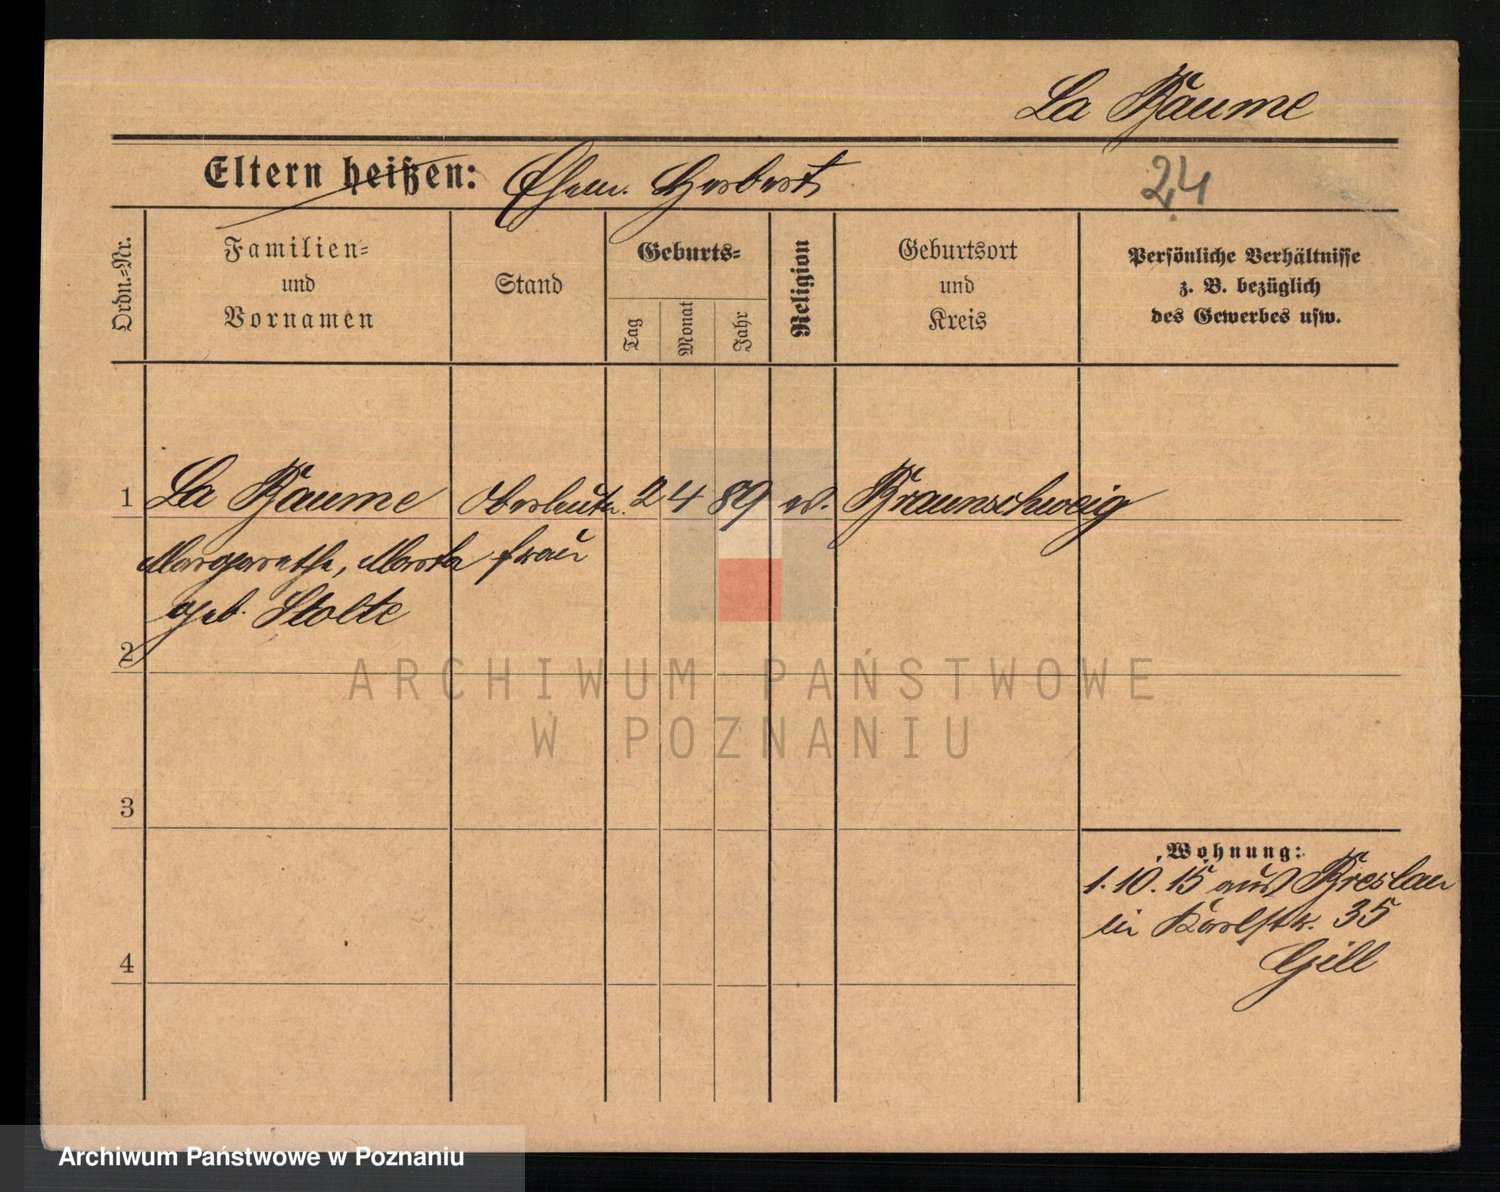 La Baume
Eltern heißen: Ehem. Herbert
24
Ordn.-Nr.
Familien-
und
Vornamen
Stand
Geburts-
Tag
Monat
Jahr
Religion
Geburtsort
und
Kreis
Persönliche Verhältnisse
z. B. bezüglich
des Gewerbes usw.
1 La Baume Oberleutn. 2 4 89 ev. Braunschweig
Margarethe, Marta frau
geb. Stolte
2
ARCHIWUM PAŃSTWOWE
W POZNANIU
3
Wohnung:
1.10.15 aus Breslau
in Karlstr. 35
Gill
4
Archiwum Państwowe w Poznaniu